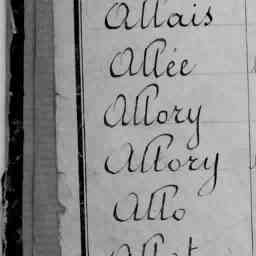 Allais
Allée
Allory
Allory
Allo